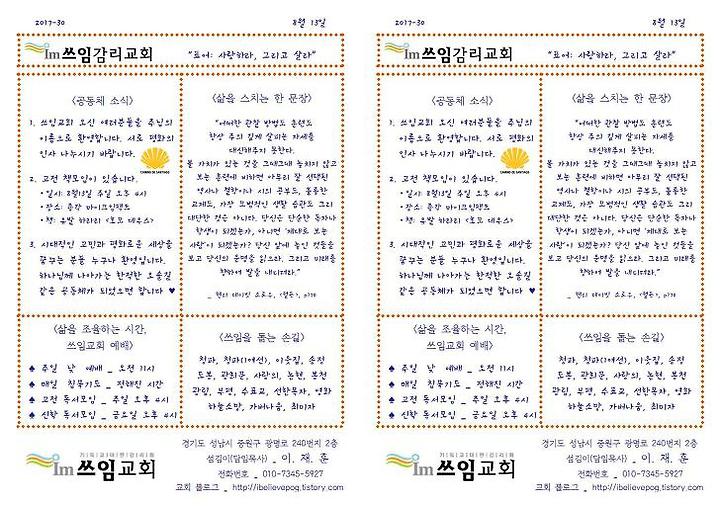 2017-30
8월 13일
Im쓰임감리교회
"표어: 사랑하라, 그리고 살라"
<공동체 소식>
1. 쓰임교회 오신 여러분들을 주님의
이름으로 환영합니다. 서로 평화의
인사 나누시기 바랍니다.
2. 고전 책모임이 있습니다.
• 일시: 8월13일 주일 오후 4시
• 장소: 중각 마이크임팩트
• 책: 유발 하라리 <호모 데우스>
3. 시대적인 고민과 평화로운 세상을
꿈꾸는 분들 누구나 환영입니다.
하나님께 나아가는 한적한 오솔길
같은 공동체가 되었으면 합니다 ♥
<삶을 스치는 한 문장>
"어떠한 관찰 방법도 훈련도
항상 주의 깊게 살피는 자세를
대신해주지 못한다.
볼 가치가 있는 것을 그때그때 놓치지 않고
보는 훈련에 비하면 아무리 잘 선택된
역사나 철학이나 시의 공부도, 훌륭한
교제도, 가장 모범적인 생활 습관도 그리
대단한 것은 아니다. 당신은 단순한 독자나
학생이 되겠는가, 아니면 '제대로 보는
사람'이 되겠는가? 당신 앞에 놓인 것들을
보고 당신의 운명을 읽으라. 그리고 미래를
향하여 발을 내디뎌라."
_ 헨리 데이빗 소로우, <월든>,
<삶을 조율하는 시간,
쓰임교회 예배>
♠ 주일 낮 예배 _ 오전 11시
♠ 매일 침묵기도 _ 정해진 시간
♠ 고전 독서모임 _ 주일 오후 4시
♠ 신학 독서모임 _ 금요일 오후 4시
<쓰임을 돕는 손길>
청파, 청파(1여선), 이웃길, 송전
도봉, 광희문, 사랑의, 논현, 봉천
광림, 부평, 수표교, 선한목자, 영화
하늘소망, 가버나움, 최미자
기독교대한감리회
Im쓰임교회
경기도 성남시 중원구 광명로 240번지 2층
섬김이(담임목사) _ 이 재 훈
전화번호 _ 010-7345-5927
교회 블로그 _ http://ibelievepog.tistory.com
2017-30
8월 13일
Im쓰임감리교회
"표어: 사랑하라, 그리고 살라"
<공동체 소식>
1. 쓰임교회 오신 여러분들을 주님의
이름으로 환영합니다. 서로 평화의
인사 나누시기 바랍니다.
2. 고전 책모임이 있습니다.
• 일시: 8월13일 주일 오후 4시
• 장소: 중각 마이크임팩트
• 책: 유발 하라리 <호모 데우스>
3. 시대적인 고민과 평화로운 세상을
꿈꾸는 분들 누구나 환영입니다.
하나님께 나아가는 한적한 오솔길
같은 공동체가 되었으면 합니다 ♥
<삶을 스치는 한 문장>
"어떠한 관찰 방법도 훈련도
항상 주의 깊게 살피는 자세를
대신해주지 못한다.
볼 가치가 있는 것을 그때그때 놓치지 않고
보는 훈련에 비하면 아무리 잘 선택된
역사나 철학이나 시의 공부도, 훌륭한
교제도, 가장 모범적인 생활 습관도 그리
대단한 것은 아니다. 당신은 단순한 독자나
학생이 되겠는가, 아니면 '제대로 보는
사람'이 되겠는가? 당신 앞에 놓인 것들을
보고 당신의 운명을 읽으라. 그리고 미래를
향하여 발을 내디뎌라."
_ 헨리 데이빗 소로우, <월든>,
<삶을 조율하는 시간,
쓰임교회 예배>
♠ 주일 낮 예배 _ 오전 11시
♠ 매일 침묵기도 _ 정해진 시간
♠ 고전 독서모임 _ 주일 오후 4시
♠ 신학 독서모임 _ 금요일 오후 4시
<쓰임을 돕는 손길>
청파, 청파(1여선), 이웃길, 송전
도봉, 광희문, 사랑의, 논현, 봉천
광림, 부평, 수표교, 선한목자, 영화
하늘소망, 가버나움, 최미자
기독교대한감리회
Im쓰임교회
경기도 성남시 중원구 광명로 240번지 2층
섬김이(담임목사) _ 이 재 훈
전화번호 _ 010-7345-5927
교회 블로그 _ http://ibelievepog.tistory.com